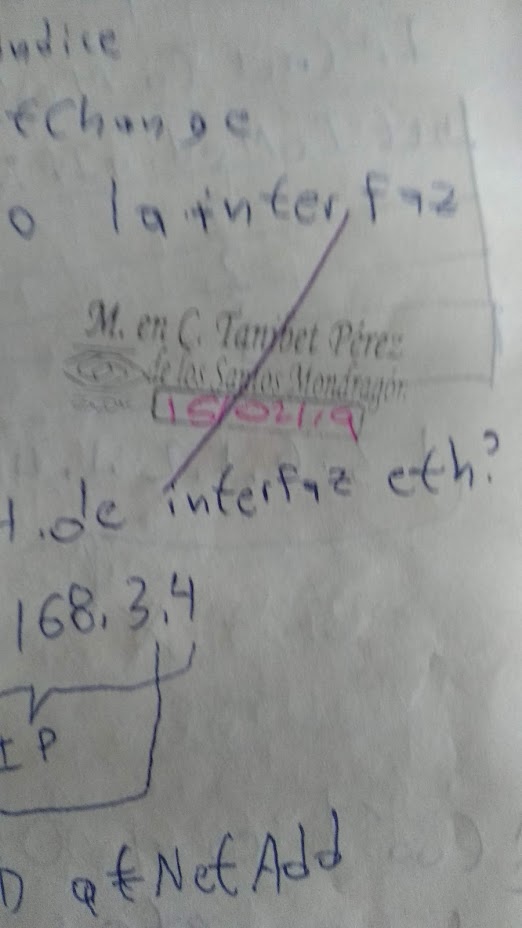 ndice
tChange
o la interfaz
M. en C. Tanibet Pérez
de los Santos Mondragón
15/02/19
.de interfaz eth?
168.3.4
IP
atNetAdd